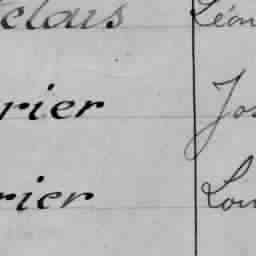 elais Léon
rier Jos
rier Lou